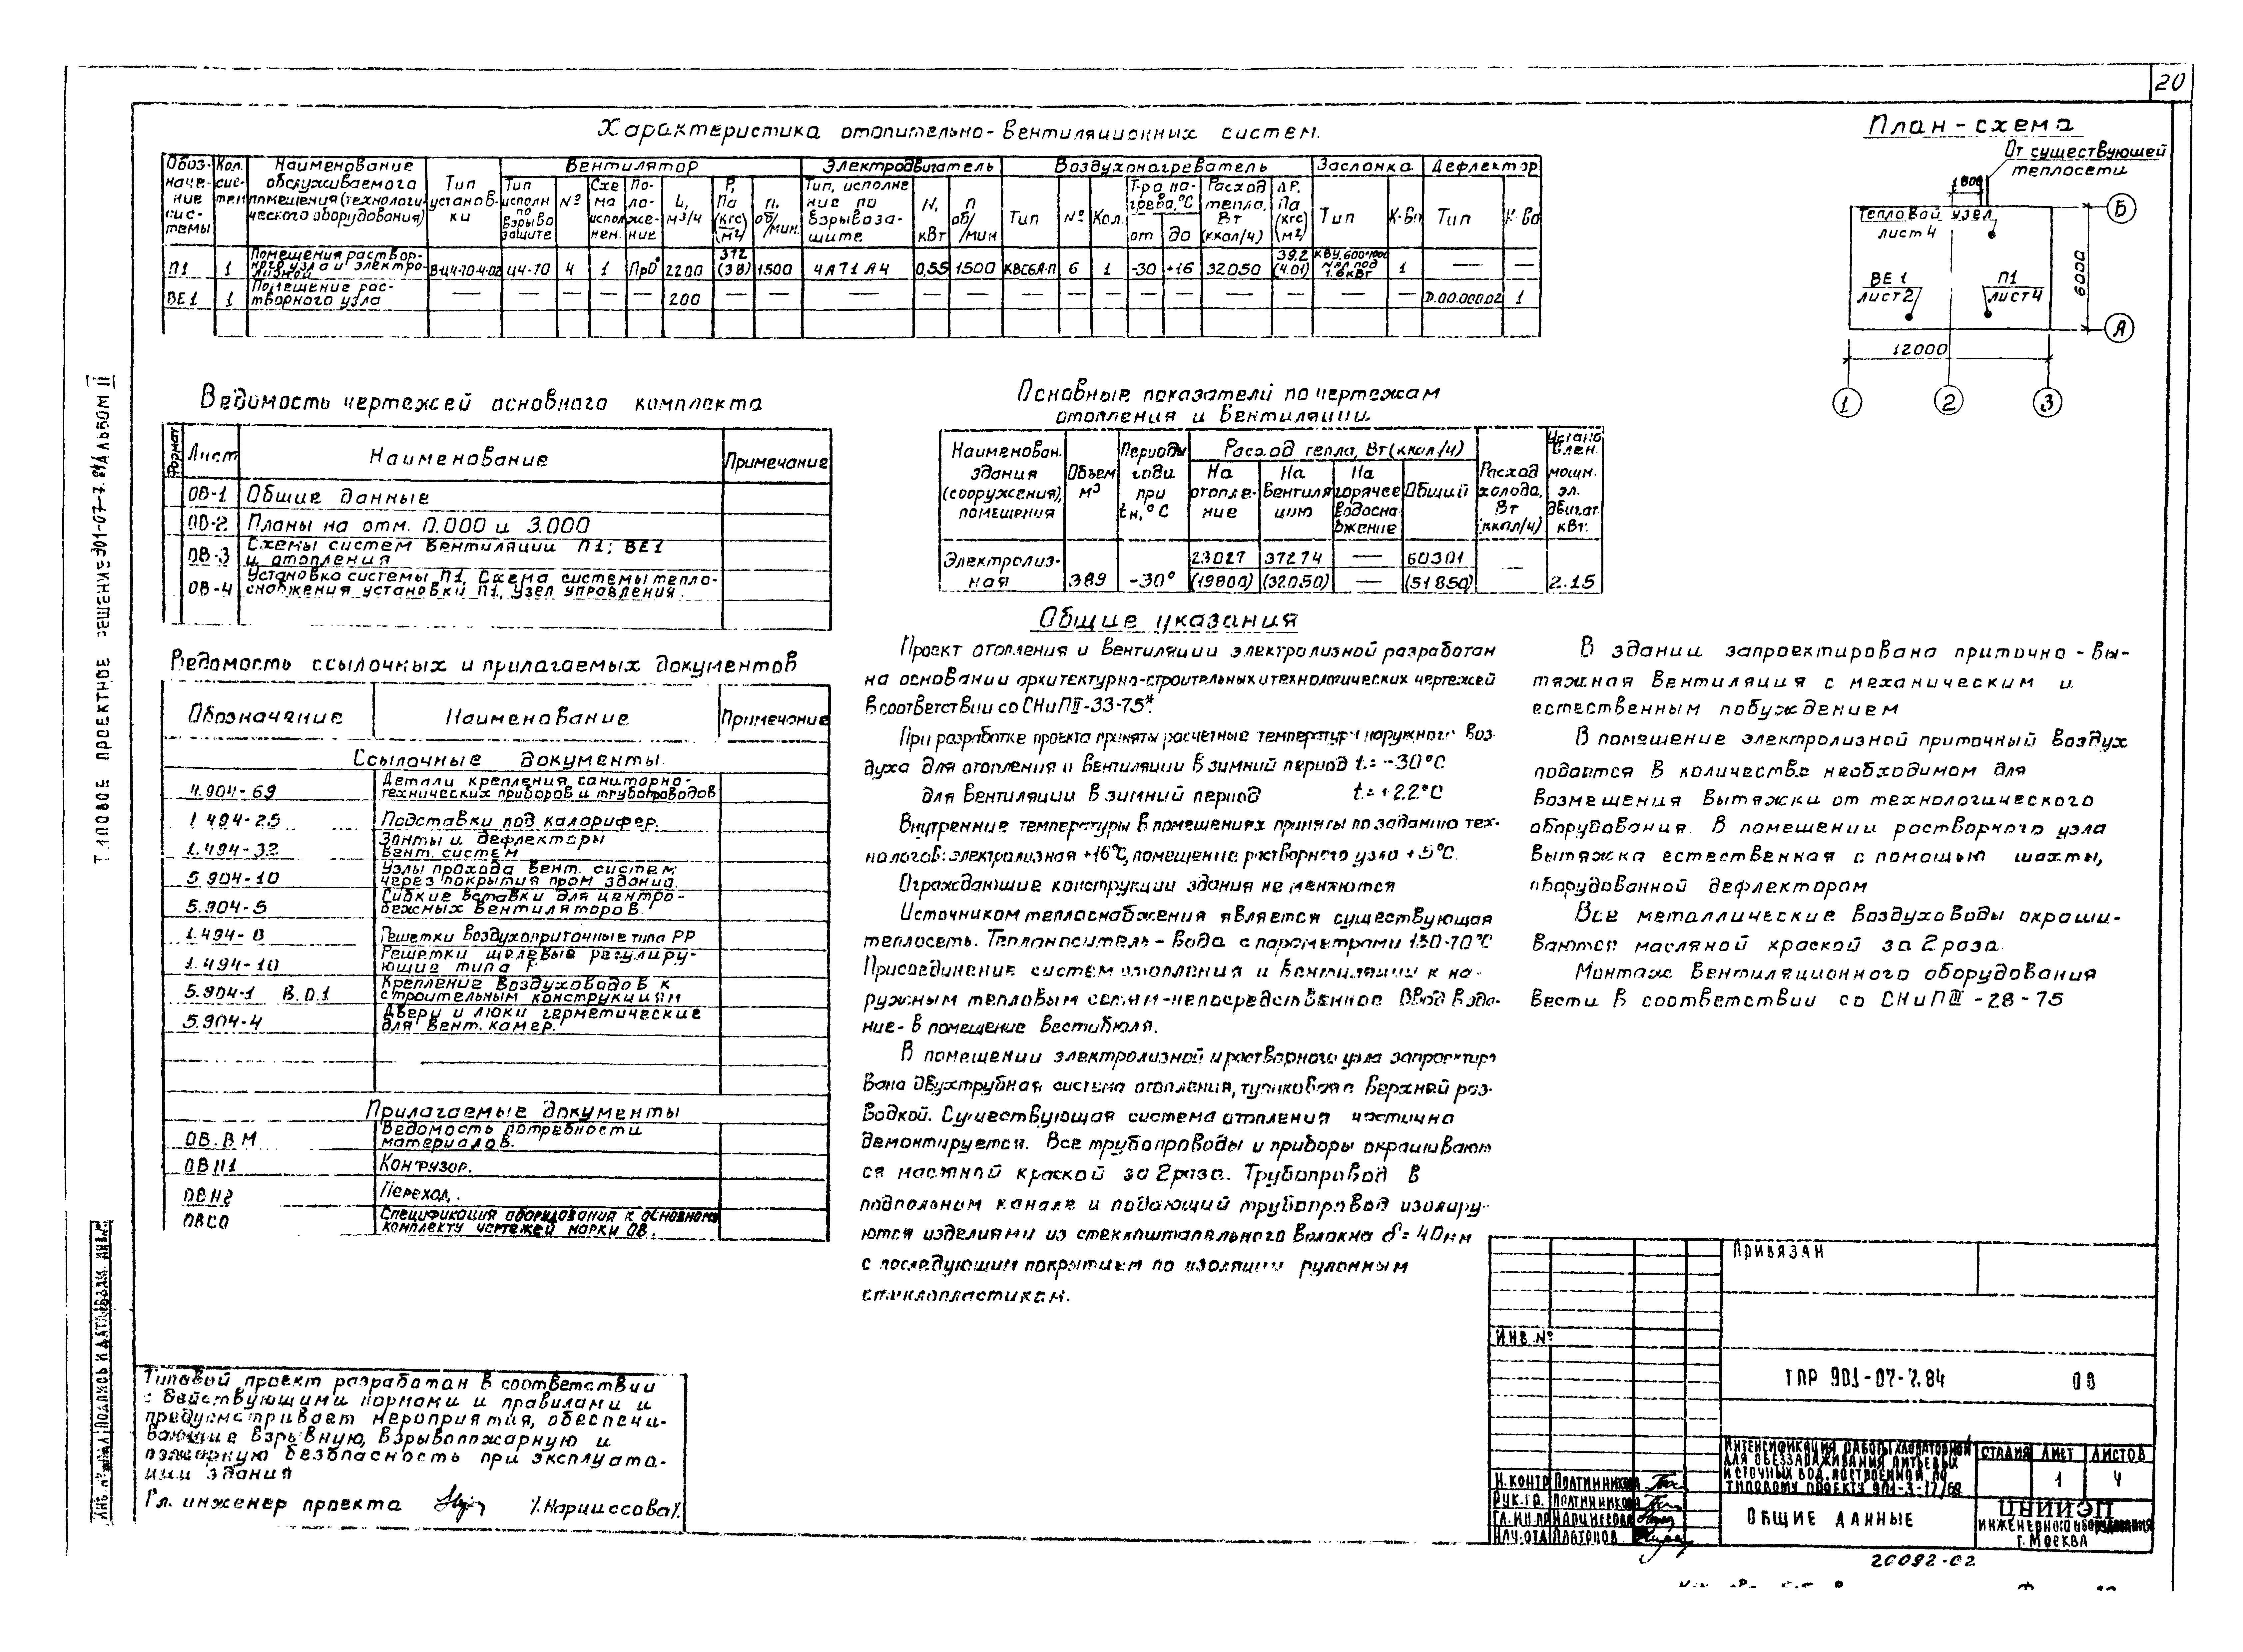 20
Характеристика отопительно-вентиляционных систем.
Обоз-наче-ние сис-темы | Кол. сис-тем | Наименование обслуживаемого помещения (технологи-ческого оборудования) | Тип установ-ки | Вентилятор | Электродвигатель | Воздухонагреватель | Заслонка | Дефлектор
Тип исполн по взрыво защите | № | Схе ма испол нен. | По-ло-же-ние | L, м3/ч | Р, Па (кгс/м2) | п, об/мин. | Тип, исполне ние по взрывоза-щите | N, кВт | п об/мин | Тип | № | Кол. | Т-ра на-грева, °С от до | Расход тепла, Вт (ккал/ч) | ΔР, Па (кгс/м2) | Тип | К-во | Тип | К-во
П1 | 1 | Помещения раствор-ного узла и электро-лизной | В-Ц4-70-4-02 | Ц4-70 | 4 | 1 | Пр0° | 2200 | 372 (38) | 1500 | 4А71А4 | 0,55 | 1500 | КВС6А-П | 6 | 1 | -30 | +16 | 32050 | 39.2 (4.01) | КВУ.600×1000 1.6 кВт | 1
ВЕ1 | 1 | Помещение рас-творного узла | — | — | — | — | — | 200 | — | — | — | — | — | — | — | — | — | — | — | — | — | — | Д.00.000.02 | 1
План-схема
От существующей
теплосети
1800
Тепловой узел
лист 4
ВЕ 1
лист 2
П1
лист 4
6000
12000
Б
А
1 2 3
Ведомость чертежей основного комплекта
Формат | Лист | Наименование | Примечание
ОВ-1 Общие данные
ОВ-2 Планы на отм. 0.000 и 3.000
ОВ-3 Схемы систем вентиляции П1; ВЕ1
и отопления
ОВ-4 Установка системы П1. Схема системы тепло-
снабжения установки П1. Узел управления.
Основные показатели по чертежам
отопления и вентиляции.
Наименован. здания (сооружения), помещения | Объем м3 | Периоды года при tн, °С | Расход тепла, Вт (ккал/ч) | Расход холода, Вт (ккал/ч) | Установлен. мощн. эл. двигат. кВт.
На отопле-ние | На вентиля цию | На горячее водосна бжение | Общий
Электролиз-ная | 389 | -30° | 23027 (19800) | 37274 (32050) | — | 60301 (51850) | — | 2.15
Ведомость ссылочных и прилагаемых документов
Обозначение | Наименование | Примечание
Ссылочные документы.
4.904-69 Детали крепления санитарно-
технических приборов и трубопроводов
1 494-25 Подставки под калорифер.
1.494-32 Зонты и дефлекторы
вент. систем
5 904-10 Узлы прохода вент. систем
через покрытия пром здания.
5.904-5 Гибкие вставки для центро-
бежных вентиляторов.
1.494-8 Решетки воздухоприточные типа РР
1.494-10 Решетки щелевые регулиру-
ющие типа Р
5.904-1 В.0.1 Крепление воздуховодов к
строительным конструкциям
5.904-4 Двери и люки герметические
для вент. камер.
Прилагаемые документы
ОВ.ВМ Ведомость потребности
материалов.
ОВН1 Конфузор.
ОВН2 Переход.
ОВСО Спецификация оборудования к основному
комплекту чертежей марки ОВ.
Общие указания
Проект отопления и вентиляции электролизной разработан
на основании архитектурно-строительных и технологических чертежей
в соответствии со СНиП II-33-75*.
При разработке проекта приняты расчетные температуры наружного воз-
духа для отопления и вентиляции в зимний период t = -30°С
для вентиляции в зимний период t = +22°С
Внутренние температуры в помещениях приняты по заданию тех-
нологов: электролизная +16°С, помещение растворного узла +5°С.
Ограждающие конструкции здания не меняются
Источником теплоснабжения является существующая
теплосеть. Теплоноситель – вода с параметрами 150-70°С
Присоединение систем отопления и вентиляции к на-
ружным тепловым сетям-непосредственное. Ввод в зда-
ние- в помещение вестибюля.
В помещении электролизной и растворного узла запроектиро
вана двухтрубная система отопления, тупиковая с верхней раз-
водкой. Существующая система отопления частично
демонтируется. Все трубопроводы и приборы окрашивают
ся масляной краской за 2 раза. Трубопровод в
подпольном канале и подающий трубопровод изолиру-
ются изделиями из стеклоштапельного волокна δ = 40мм
с последующим покрытием по изоляции рулонным
стеклопластиком.
В здании запроектирована приточно-вы-
тяжная вентиляция с механическим и
естественным побуждением
В помещение электролизной приточный воздух
подается в количестве необходимом для
возмещения вытяжки от технологического
оборудования. В помещении растворного узла
вытяжка естественная с помощью шахты,
оборудованной дефлектором
Все металлические воздуховоды окраши-
ваются масляной краской за 2 раза.
Монтаж вентиляционного оборудования
вести в соответствии со СНиП III-28-75
Типовой проект разработан в соответствии
с действующими нормами и правилами и
предусматривает мероприятия, обеспечи-
вающие взрывную, взрывопожарную и
пожарную безопасность при эксплуата-
ции здания
Гл. инженер проекта /.Нарциссова/.
Привязан
Инв. №
ТПР 901-07-7.84 ОВ
Интенсификация работы хлораторной
для обеззараживания питьевых
и сточных вод, построенной по
типовому проекту 901-3-17/69
Стадия | Лист | Листов
1 | 4
Общие данные
ЦНИИЭП
инженерного оборудования
г. Москва
Н.контр Платинникова
Рук.гр. Платинникова
Гл.ин.пр Нарциссова
Нач.отд Платонов
20092-02
Типовое проектное решение 901-07-7.84 Альбом II
Инв. № подл. Подпись и дата Взам. инв. №